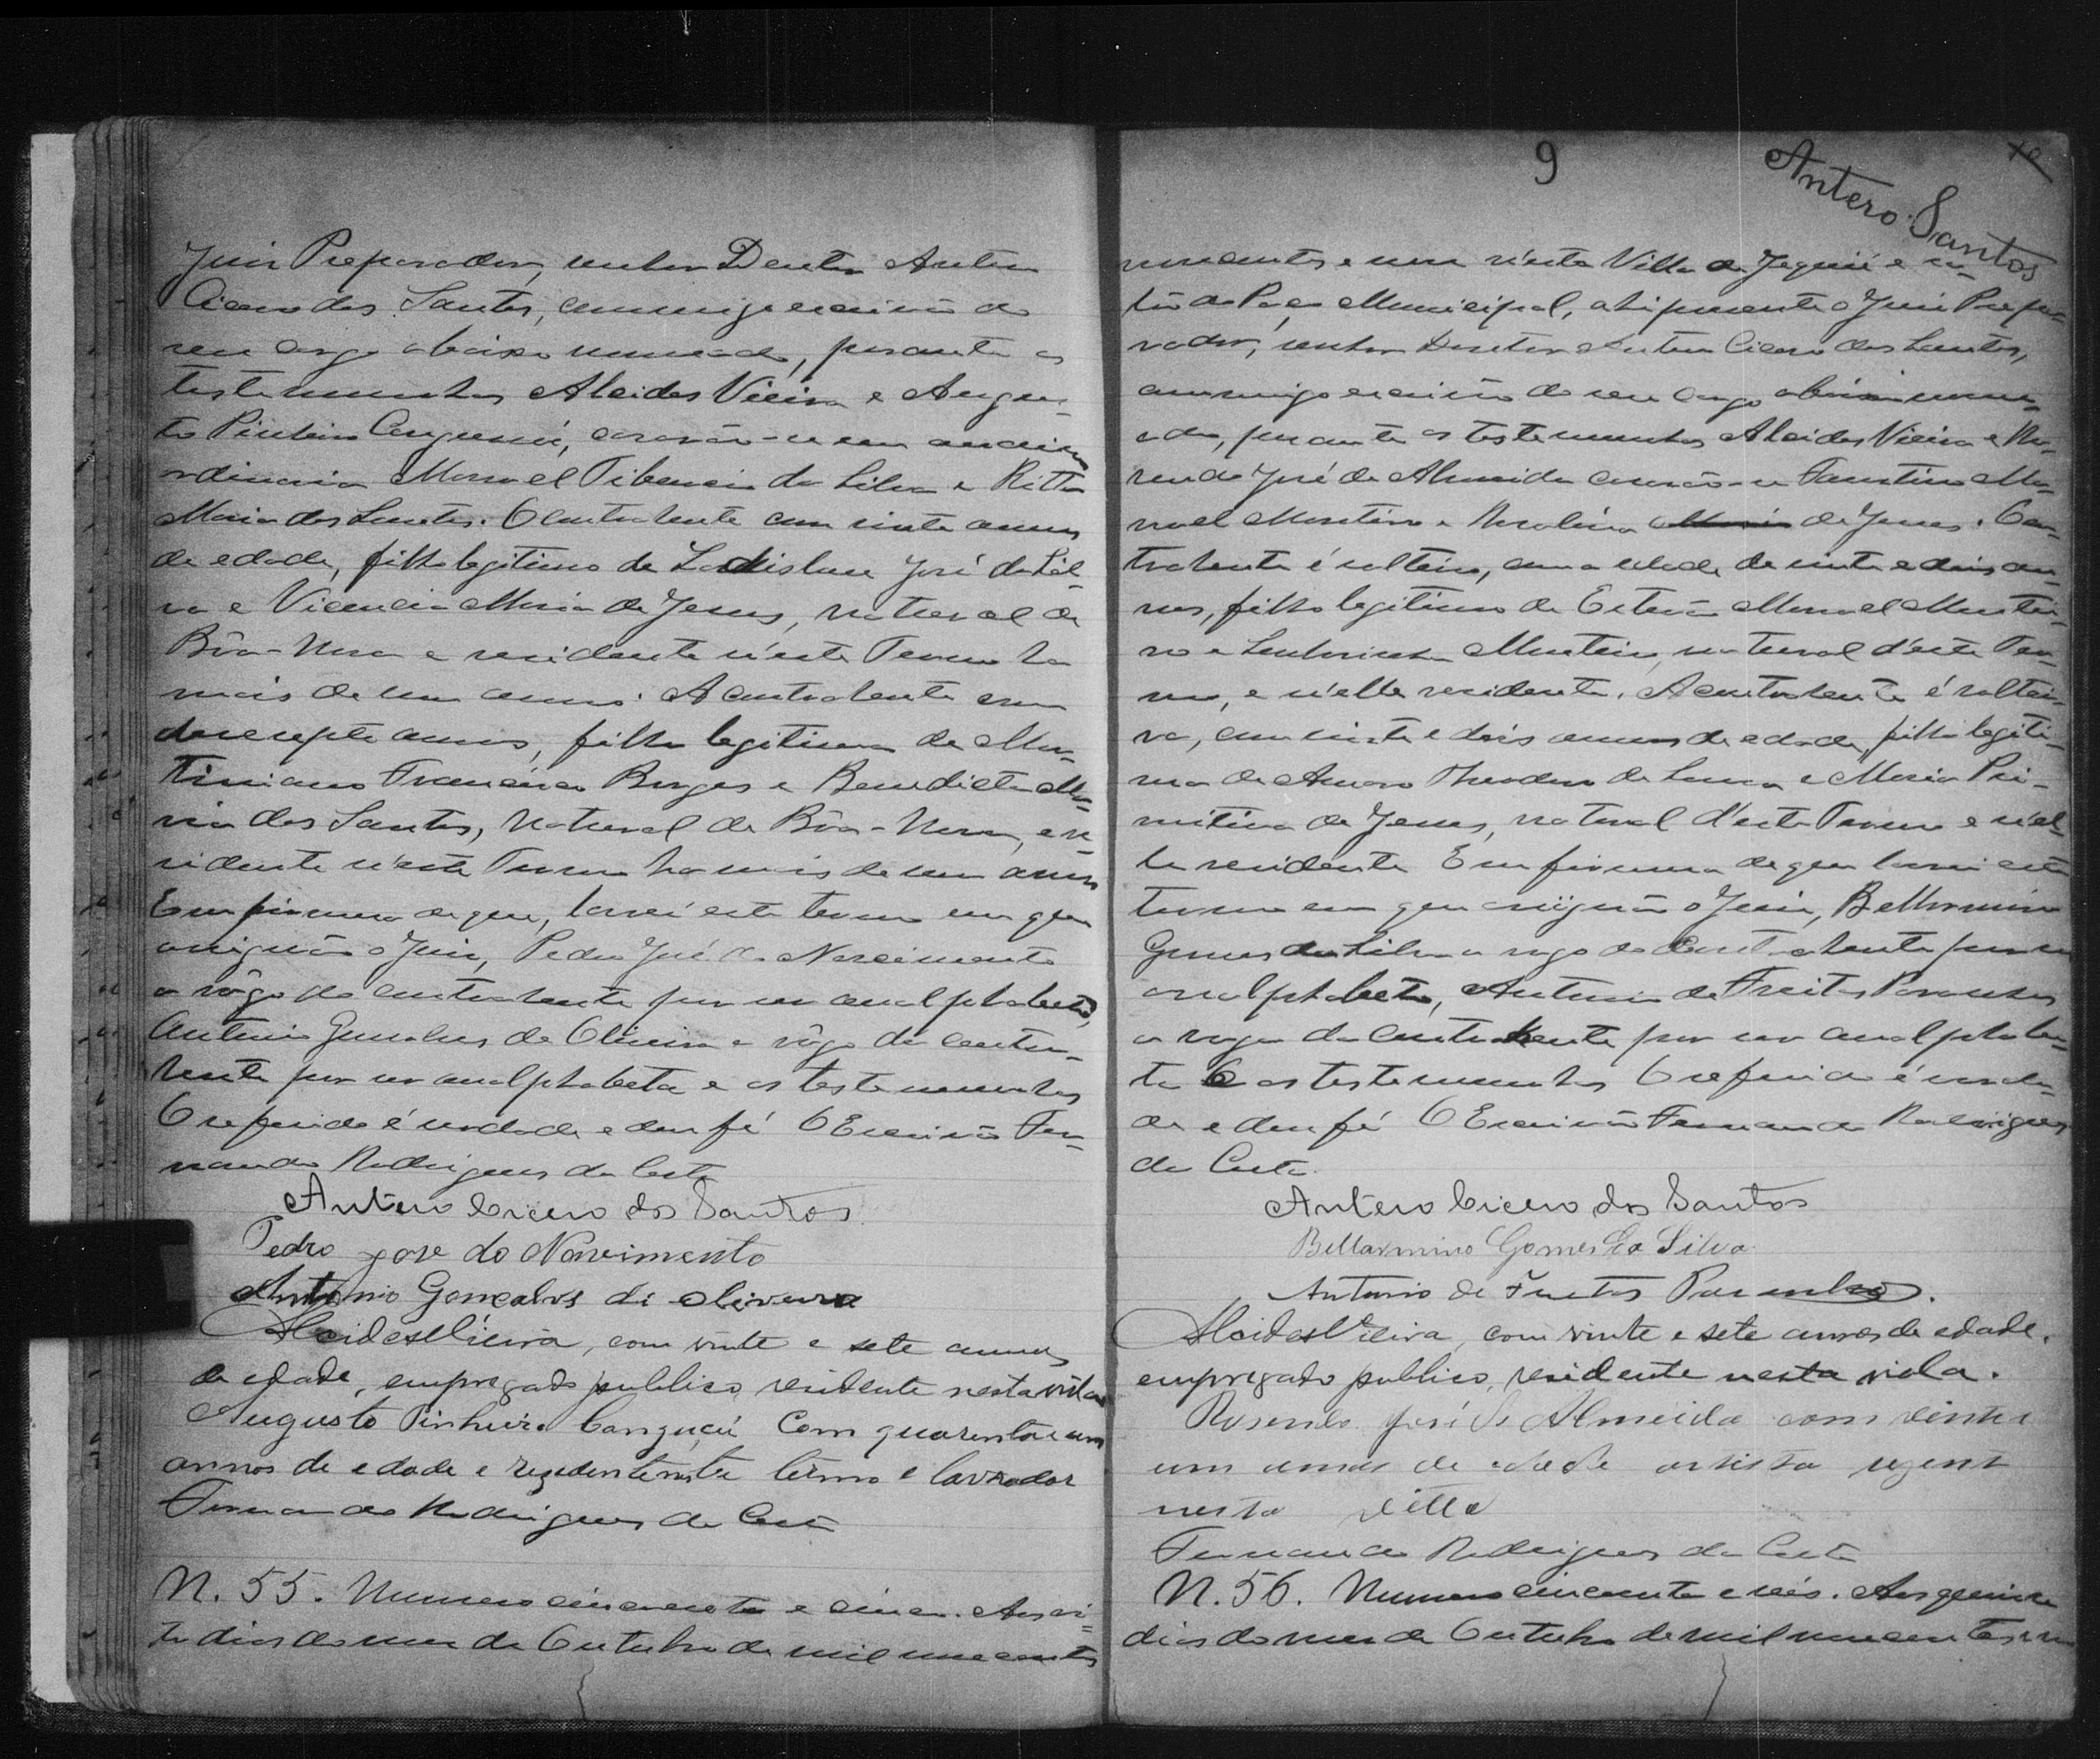 Juiz Preparador, senhor Doutor Antero
Cicero dos Santos, commigo escrivão do
seu cargo abaixo nomeado, perante as
testemunhas Alcides Vieira e Augus-
to Pinheiro Canguçú, casarão-se em audiencia
ordinaria Manoel Tiburcio da Silva e Ritta
Maria dos Santos. O contrahente com vinte annos
de edade, filho legitimo de Ladislau José da Sil-
va e Vicencia Maria de Jesus, natural de
Bôa-Nova e residente n'este Termo ha
mais de um anno. A contrahente com
desesepte annos, filha legitima de Mar-
tiniano Francisco Borges e Benedicta Ma-
ria dos Santos, natural de Bôa-Nova, e re-
sidente n'este Termo ha mais de um anno
Em firmeza de que, lavrei este termo em que
assignão o Juiz, Pedro José do Nascimento
a rôgo do contrahente por ser analphabeto,
Antonio Gonsalves de Oliveira a rôgo da contra-
hente por ser analphabeta e as testemunhas
O referido é verdade e dou fé O Escrivão Fer-
nando Rodrigues da Costa
Antero Cicero dos Santos
Pedro jose do Nascimento
Antonio Goncalvs di oliveira
Alcides Vieira, com vinte e sete annos
de edade, empregado publico, residente nesta villa
Augusto Pinheiro Canguçú Com quarenta e um
annos de edade e rezidente neste termo e lavrador
Fernando Rodrigues da Costa
N. 55. Numero cincoenta e cinco. Aos oi-
to dias do mez de Outubro de mil novecentos
9
Antero Santos
novecentos e nove n'esta Villa de Jequié e sa-
lão do Paço Municipal, ahi presente o Juiz Prepa-
rador, senhor Doutor Antero Cicero dos Santos,
commigo escrivão do seu cargo abaixo nome-
ado, perante as testemunhas Alcides Vieira e Ro-
sendo José de Almeida casarão-se Faustino Ma-
noel Monteiro e Rosalina Maria de Jesus. O con-
trahente é solteiro, com a edade de vinte e dois an-
nos, filho legitimo de Estevão Manoel Montei-
ro e Monteiro, natural d'este Ter-
mo, e n'elle residente. A contrahente é soltei-
ra, com vinte e dois annos de edade, filha legiti-
ma de Theodoro de Souza e Maria Pri-
mitiva de Jesus, natural d'este Termo e n'el-
le residente Em firmeza de que lavrei este
termo em que assignão o Juiz, Bellarmino
Gomes da Silva a rogo do contrahente por ser
analphabeto, Antonio de Freitas Paranhos
a rogo da contrahente por ser analphabe-
ta e as testemunhas O referido é verda-
de e dou fé O Escrivão Fernando Rodrigues
da Costa.
Antero Cicero dos Santos
Bellarmino Gomes da Silva
Antonio de Freitas Paranhos.
Alcides Vieira, com vinte e sete annos de edade,
empregado publico, residente nesta vila.
Rosendo José de Almeida com vinte e
um annos de edade artista
nesta Villa
Fernando Rodrigues da Costa
N. 56. Numero cincoenta e seis. Aos quinze
dias do mez de Outubro de mil novecentos e no